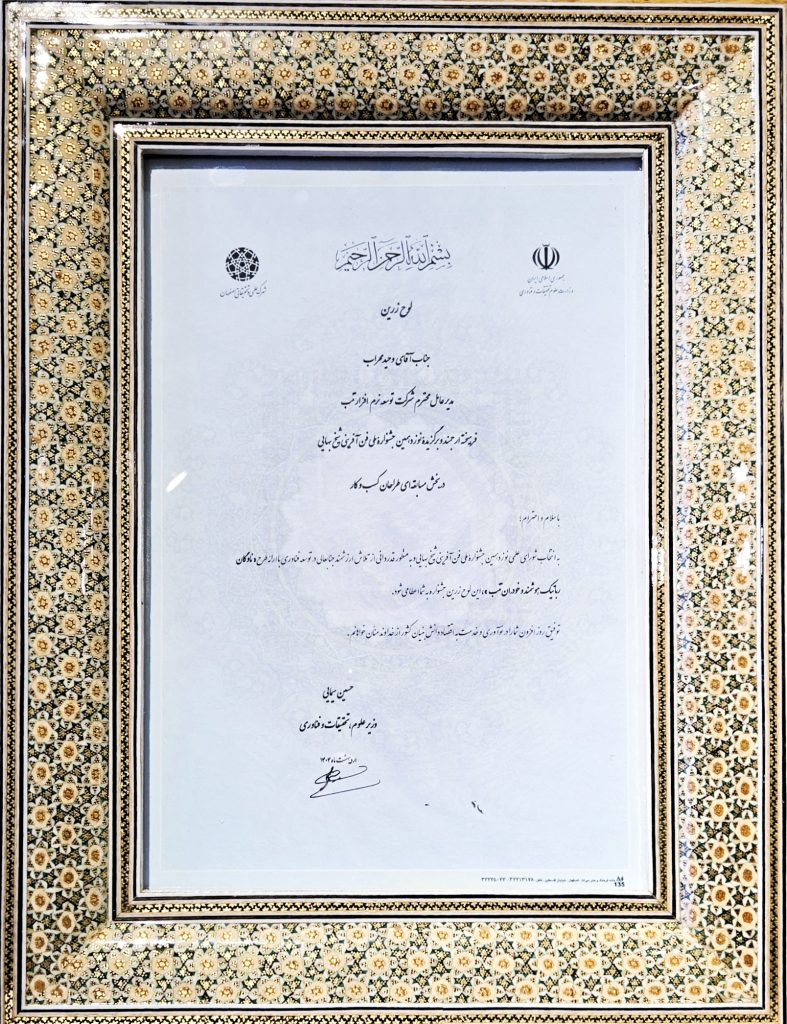 بسم الله الرحمن الرحیم
جمهوری اسلامی ایران
وزارت علوم، تحقیقات و فناوری
شهرک علمی و تحقیقاتی اصفهان
لوح زرین
جناب آقای وحید محراب
مدیرعامل محترم شرکت توسعه نرم افزار تب
فرهیخته ارجمند و برگزیدهٔ نوزدهمین جشنوارهٔ ملی فن آفرینی شیخ بهایی
در بخش مسابقه‌ای طراحان کسب و کار
با سلام و احترام؛
به انتخاب شورای علمی نوزدهمین جشنوارهٔ ملی فن آفرینی شیخ بهایی و به منظور قدردانی از تلاش ارزشمند جنابعالی در توسعه فناوری با ارائه طرح
رباتیک هوشمند و خودران تب این لوح زرین جشنواره به شما اعطا می شود.
توفیق روز افزون شما را در نوآوری و خدمت به اقتصاد دانش بنیان کشور از خداوند منان خواهانم.
حسین سیمایی
وزیر علوم، تحقیقات و فناوری
اردیبهشت ماه ۱۴۰۴
A4
135